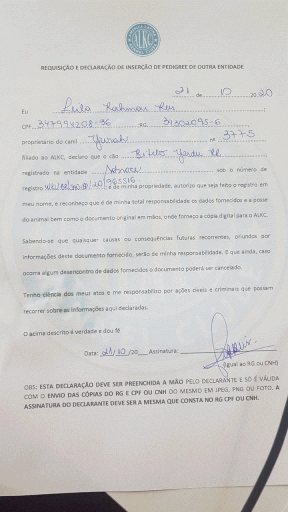 ALKC
REQUISIÇÃO E DECLARAÇÃO DE INSERÇÃO DE PEDIGREE DE OUTRA ENTIDADE
21 de 10 2020
Eu Leila Rahman
CPF 347994208-36 RG 31304095-6
proprietário do canil Yurah nº 3775
filiado ao ALKC, declaro que o cão
registrado na entidade sob o número de
registro é de minha propriedade, autorizo que seja feito o registro em
meu nome, e reconheço que é de minha total responsabilidade os dados fornecidos e a posse
do animal bem como o documento original em mãos, onde forneço a cópia digital para o ALKC.
Sabendo-se que quaisquer causas ou consequências futuras recorrentes, oriundos por
informações deste documento fornecido, serão de minha responsabilidade. E que ainda, caso
ocorra algum desencontro de dados fornecidos o documento poderá ser cancelado.
Tenho ciência dos meus atos e me responsabilizo por ações cíveis e criminais que possam
recorrer sobre as informações aqui declaradas.
O acima descrito é verdade e dou fé
Data: 21/10/20 Assinatura:
(Igual ao RG ou CNH)
OBS: ESTA DECLARAÇÃO DEVE SER PREENCHIDA A MÃO PELO DECLARANTE E SÓ É VÁLIDA
COM O ENVIO DAS CÓPIAS DO RG E CPF OU CNH DO MESMO EM JPEG, PNG OU FOTO. A
ASSINATURA DO DECLARANTE DEVE SER A MESMA QUE CONSTA NO RG CPF OU CNH.